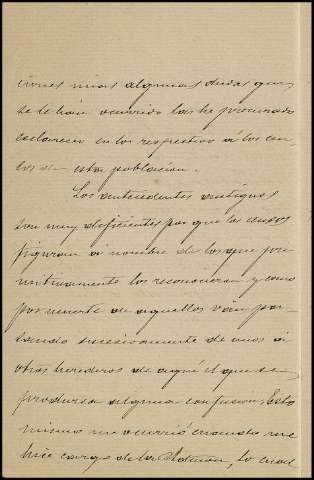 ciones mias algunas dudas que
se le han ocurrido las he procurado
esclarecer en los respectivo á los cen-
sos de esta población.
Los antecedentes antiguos
son muy deficientes por que los censos
figuran á nombre de los que pri-
mitivamente los reconocieron y como
por muerte de aquellos van pa-
sando sucesivamente de unos á
otros herederos de aqui el que se
produzca alguna confusión, Esto
mismo me ocurrió cuando me
hice cargo de la Admon, lo cual